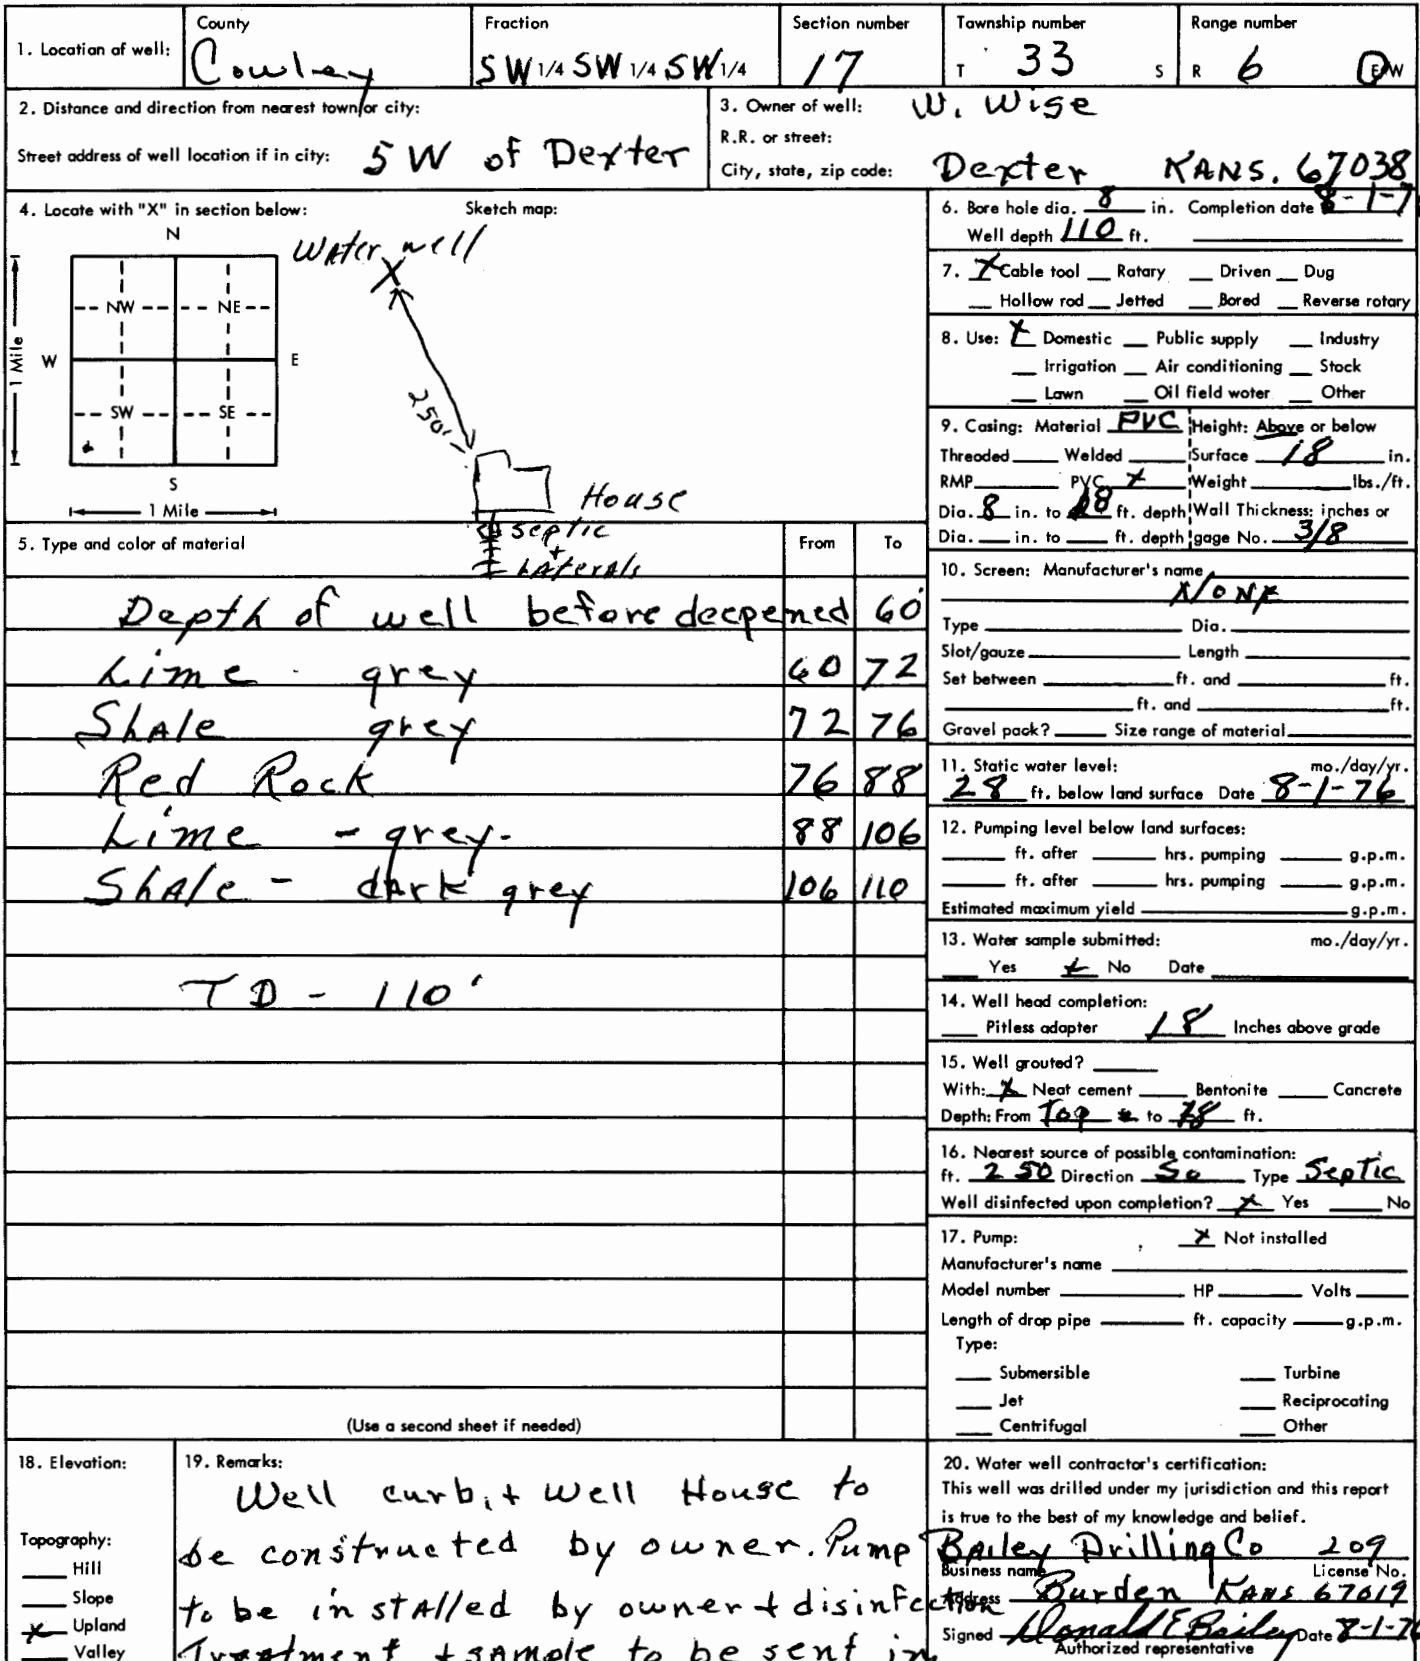 1. Location of well: County Cowley Fraction SW 1/4 SW 1/4 SW 1/4 Section number 17 Township number T 33 S Range number R 6 E/W
2. Distance and direction from nearest town or city:
Street address of well location if in city: 5 W of Dexter
3. Owner of well: W. Wise
R.R. or street:
City, state, zip code: Dexter KANS. 67038
4. Locate with "X" in section below: Sketch map:
N
NW NE
W E
SW SE
S
1 Mile
1 Mile
Water well
X
250'
House
septic
+
LAterAls
5. Type and color of material From To
Depth of well before deepened 60'
Lime - grey 60 72
Shale grey 72 76
Red Rock 76 88
Lime - grey- 88 106
Shale - dark grey 106 110
TD - 110'
(Use a second sheet if needed)
6. Bore hole dia. 8 in. Completion date 8-1-7
Well depth 110 ft.
7. X Cable tool __ Rotary __ Driven __ Dug
__ Hollow rod __ Jetted __ Bored __ Reverse rotary
8. Use: X Domestic __ Public supply __ Industry
__ Irrigation __ Air conditioning __ Stock
__ Lawn __ Oil field water __ Other
9. Casing: Material PVC Height: Above or below
Threaded __ Welded __ Surface 18 in.
RMP __ PVC X Weight __ lbs./ft.
Dia. 8 in. to ft. depth Wall Thickness: inches or
Dia. __ in. to __ ft. depth gage No. 3/8
10. Screen: Manufacturer's name
None
Type __ Dia. __
Slot/gauze __ Length __
Set between __ ft. and __ ft.
__ ft. and __ ft.
Gravel pack? __ Size range of material __
11. Static water level: mo./day/yr.
28 ft. below land surface Date 8-1-76
12. Pumping level below land surfaces:
__ ft. after __ hrs. pumping __ g.p.m.
__ ft. after __ hrs. pumping __ g.p.m.
Estimated maximum yield __ g.p.m.
13. Water sample submitted: mo./day/yr.
__ Yes X No Date __
14. Well head completion:
__ Pitless adapter 18 Inches above grade
15. Well grouted? __
With: X Neat cement __ Bentonite __ Concrete
Depth: From Top to ft.
16. Nearest source of possible contamination:
ft. 250 Direction So Type Septic
Well disinfected upon completion? X Yes __ No
17. Pump: X Not installed
Manufacturer's name __
Model number __ HP __ Volts __
Length of drop pipe __ ft. capacity __ g.p.m.
Type:
__ Submersible __ Turbine
__ Jet __ Reciprocating
__ Centrifugal __ Other
18. Elevation:
Topography:
__ Hill
__ Slope
X Upland
__ Valley
19. Remarks:
Well curb, + Well House to
be constructed by owner. Pump
to be installed by owner + disinfection
Treatment + sample to be sent in
20. Water well contractor's certification:
This well was drilled under my jurisdiction and this report
is true to the best of my knowledge and belief.
Bailey Drilling Co 209
Business name License No.
Address Burden KANS 67019
Signed Donald E Bailey Date 8-1-76
Authorized representative